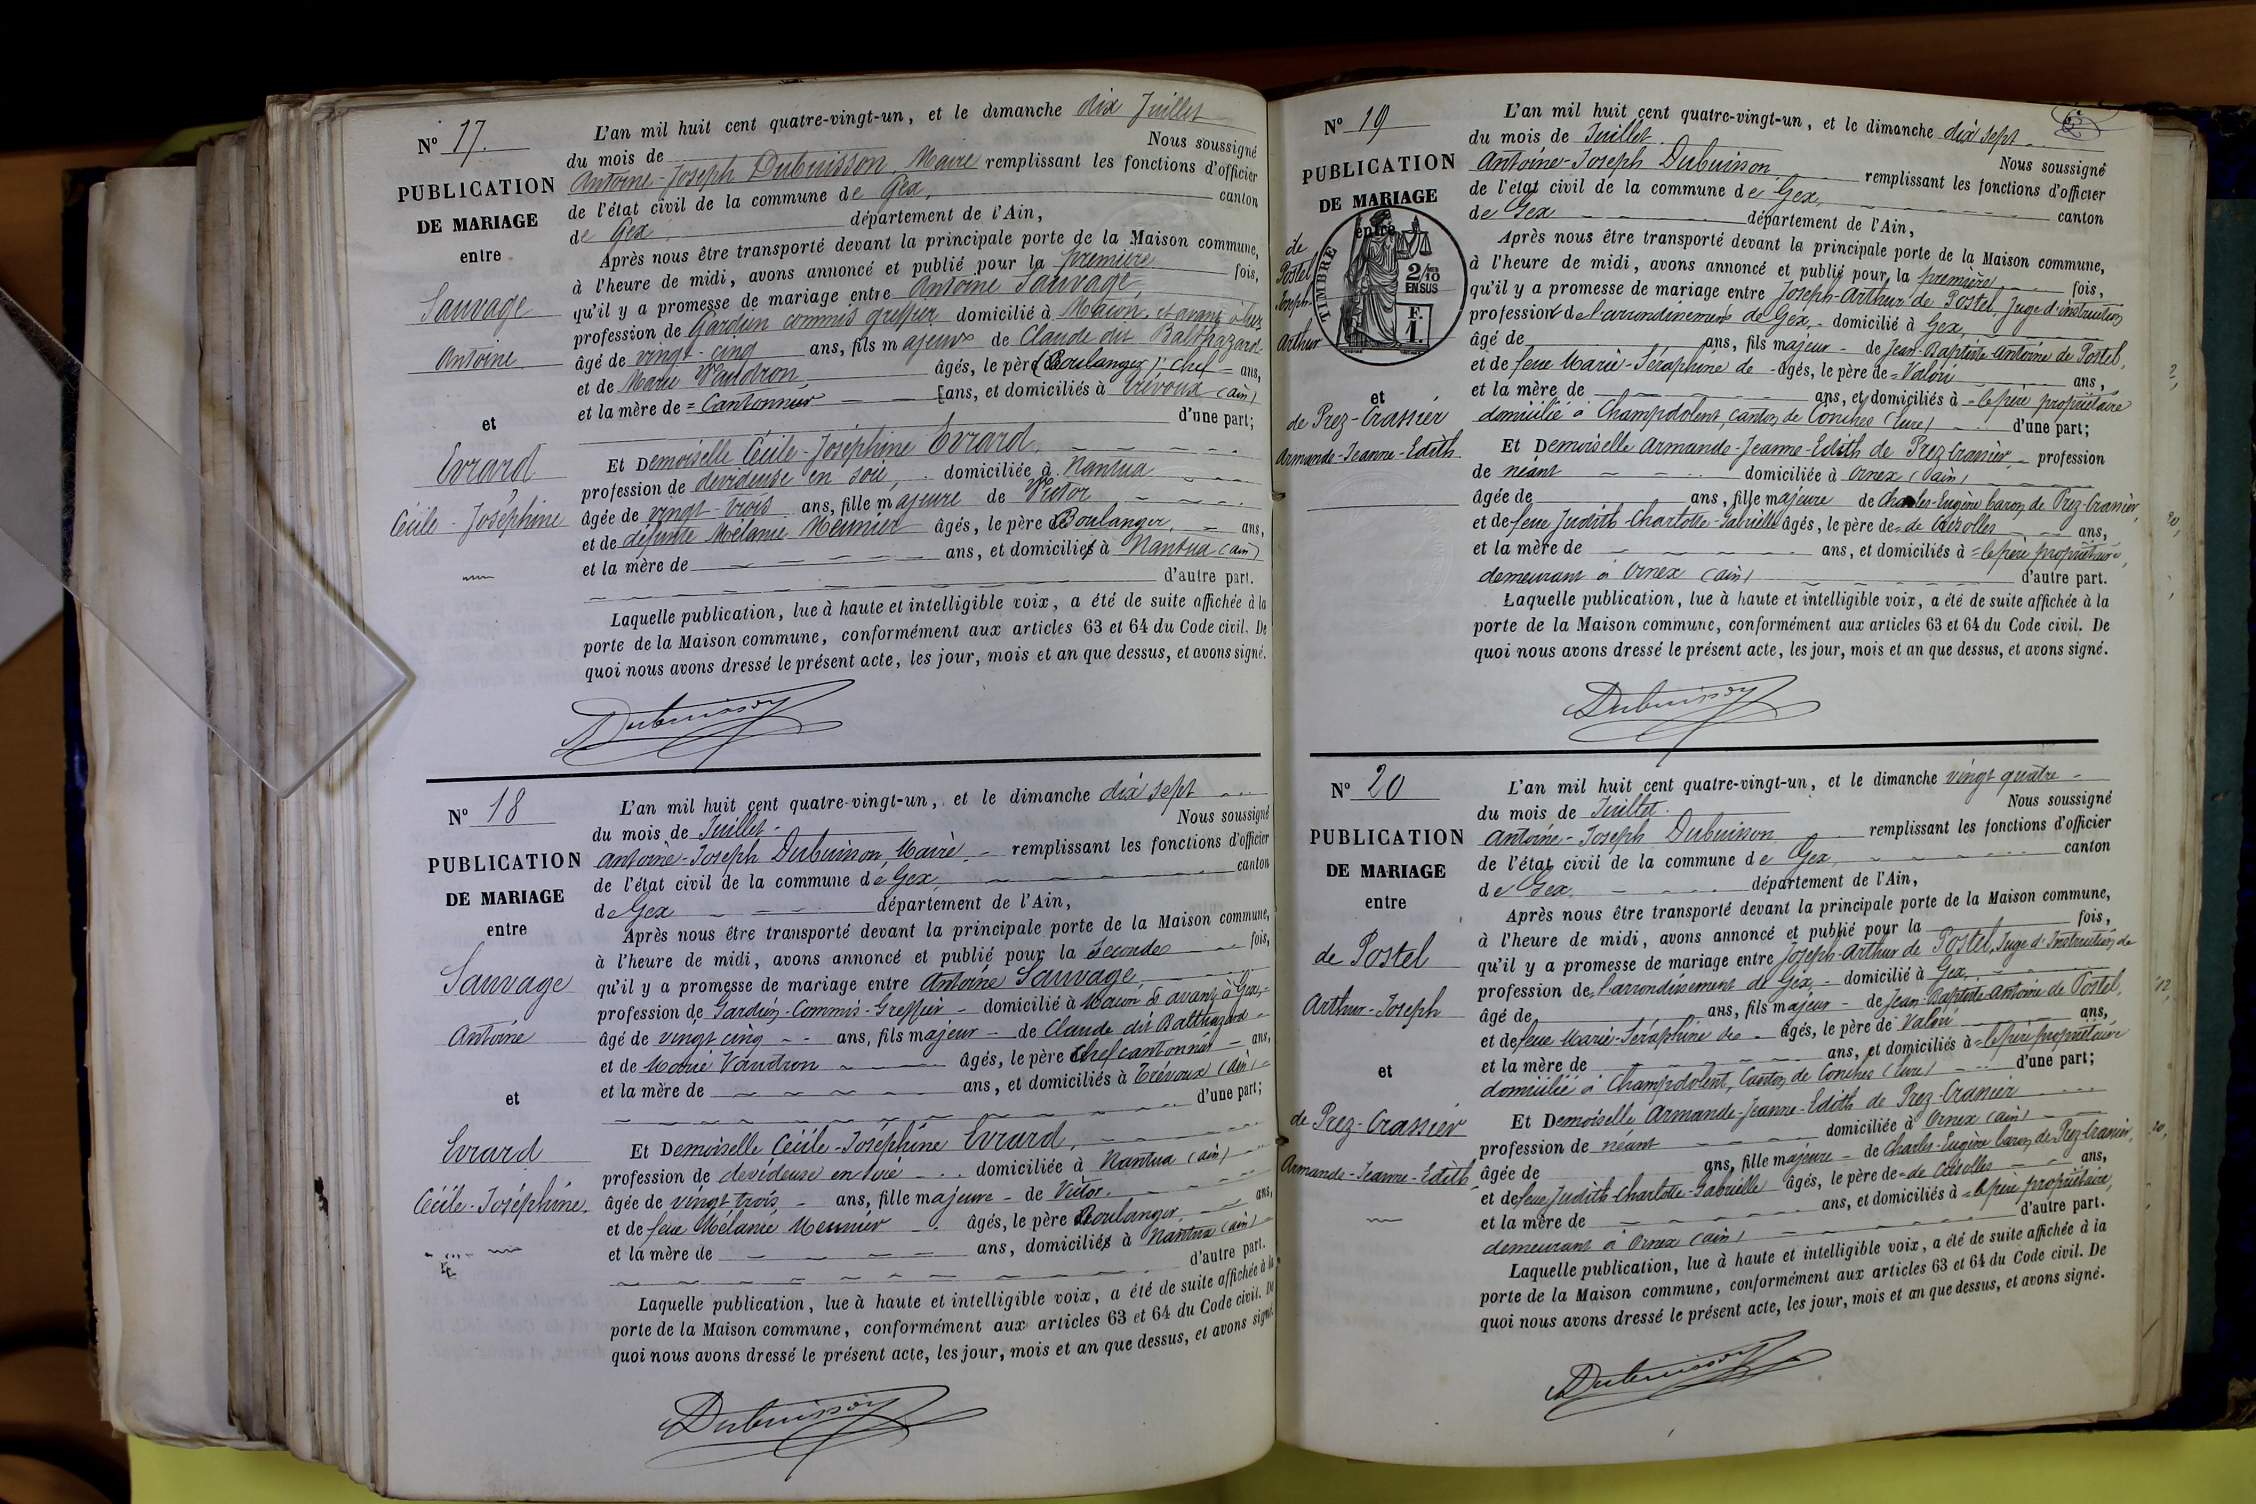 Nº 17.
PUBLICATION
DE MARIAGE
entre
Sauvage
Antoine
et
Evrard
Cécile-Joséphine
L'an mil huit cent quatre-vingt-un, et le dimanche dix Juillet
du mois de Nous soussigné
Antoine-Joseph Dubuisson, Maire remplissant les fonctions d'officier
de l'état civil de la commune de Gex, canton
de Gex département de l'Ain,
Après nous être transporté devant la principale porte de la Maison commune,
à l'heure de midi, avons annoncé et publié pour la première fois,
qu'il y a promesse de mariage entre Antoine Sauvage,
profession de Gardien commis greffier domicilié à Macon, et avant à Gex
âgé de vingt-cinq ans, fils majeur de Claude dit Balthazard
et de Marie Vaudron, âgés, le père (Boulanger) chef ans,
et la mère de = Cantonnier ans, et domiciliés à Trévoux (ain)
d'une part;
Et Demoiselle Cécile-Joséphine Evrard,
profession de devideuse en soie, domiciliée à Nantua
âgée de vingt-trois ans, fille majeure de Victor
et de défunte Mélanie Meunier âgés, le père Boulanger, ans,
et la mère de ans, et domiciliés à Nantua (ain)
d'autre part.
Laquelle publication, lue à haute et intelligible voix, a été de suite affichée à la
porte de la Maison commune, conformément aux articles 63 et 64 du Code civil. De
quoi nous avons dressé le présent acte, les jour, mois et an que dessus, et avons signé.
Dubuisson
Nº 18
PUBLICATION
DE MARIAGE
entre
Sauvage
Antoine
et
Evrard
Cécile-Joséphine.
L'an mil huit cent quatre-vingt-un, et le dimanche dix sept
du mois de Juillet. Nous soussigné
Antoine-Joseph Dubuisson, Maire remplissant les fonctions d'officier
de l'état civil de la commune de Gex, canton
de Gex département de l'Ain,
Après nous être transporté devant la principale porte de la Maison commune,
à l'heure de midi, avons annoncé et publié pour la seconde fois,
qu'il y a promesse de mariage entre Antoine Sauvage,
profession de Gardien-Commis-Greffier domicilié à Macon & avant à Gex,
âgé de vingt cinq ans, fils majeur de Claude dit Balthazard
et de Marie Vaudron âgés, le père Chef cantonnier ans,
et la mère de ans, et domiciliés à Trévoux (ain)
d'une part;
Et Demoiselle Cécile-Joséphine Evrard,
profession de devideuse en soie domiciliée à Nantua (ain)
âgée de vingt trois, ans, fille majeure de Victor.
et de feue Mélanie Meunier âgés, le père Boulanger, ans,
et la mère de ans, domiciliés à Nantua (ain)
d'autre part.
Laquelle publication, lue à haute et intelligible voix, a été de suite affichée à la
porte de la Maison commune, conformément aux articles 63 et 64 du Code civil. De
quoi nous avons dressé le présent acte, les jour, mois et an que dessus, et avons signé.
Dubuisson
Nº 19
PUBLICATION
DE MARIAGE
entre
TIMBRE
2/10
EN SUS
F.
1.
de
Postel
Joseph-
Arthur
et
de Prez-Crassier
Armande-Jeanne-Edith.
L'an mil huit cent quatre-vingt-un, et le dimanche dix sept
du mois de Juillet. Nous soussigné
Antoine-Joseph Dubuisson remplissant les fonctions d'officier
de l'état civil de la commune de Gex, canton
de Gex département de l'Ain,
Après nous être transporté devant la principale porte de la Maison commune,
à l'heure de midi, avons annoncé et publié pour la première fois,
qu'il y a promesse de mariage entre Joseph-Arthur de Postel, Juge d'instruction
profession de l'arrondissement de Gex, domicilié à Gex,
âgé de ans, fils majeur de Jean-Baptiste-Antoine de Postel,
et de feue Marie-Séraphine de âgés, le père de = Valori ans,
et la mère de ans, et domiciliés à = le père propriétaire
domicilié à Champdolent, canton de Conches (Eure) d'une part;
Et Demoiselle Armande-Jeanne-Edith de Prez-Crassier, profession
de néant domiciliée à Ornex (ain)
âgée de ans, fille majeure de Charles-Eugène baron de Prez-Crassier,
et de feue Judith-Charlotte-Gabrielle âgés, le père de = de Cérolles ans,
et la mère de ans, et domiciliés à = le père propriétaire,
demeurant à Ornex (ain) d'autre part.
Laquelle publication, lue à haute et intelligible voix, a été de suite affichée à la
porte de la Maison commune, conformément aux articles 63 et 64 du Code civil. De
quoi nous avons dressé le présent acte, les jour, mois et an que dessus, et avons signé.
Dubuisson
Nº 20
PUBLICATION
DE MARIAGE
entre
de Postel
Arthur-Joseph
et
de Prez-Crassier
Armande-Jeanne-Edith
L'an mil huit cent quatre-vingt-un, et le dimanche vingt quatre
du mois de Juillet. Nous soussigné
Antoine-Joseph Dubuisson remplissant les fonctions d'officier
de l'état civil de la commune de Gex canton
de Gex département de l'Ain,
Après nous être transporté devant la principale porte de la Maison commune,
à l'heure de midi, avons annoncé et publié pour la fois,
qu'il y a promesse de mariage entre Joseph-Arthur de Postel, Juge d'Instruction de
profession de l'arrondissement de Gex, domicilié à Gex,
âgé de ans, fils majeur de Jean-Baptiste-Antoine de Postel,
et de feue Marie-Séraphine de âgés, le père de Valori ans,
et la mère de ans, et domiciliés à = le père propriétaire
domicilié à Champdolent, Canton de Conches (Eure) d'une part;
Et Demoiselle Armande-Jeanne-Edith de Prez-Crassier
profession de néant domiciliée à Ornex (ain)
âgée de ans, fille majeure de Charles-Eugène baron de Prez-Crassier,
et de feue Judith-Charlotte-Gabrielle âgés, le père de = de Cérolles ans,
et la mère de ans, et domiciliés à = le père propriétaire,
demeurant à Ornex (ain) d'autre part.
Laquelle publication, lue à haute et intelligible voix, a été de suite affichée à la
porte de la Maison commune, conformément aux articles 63 et 64 du Code civil. De
quoi nous avons dressé le présent acte, les jour, mois et an que dessus, et avons signé.
Dubuisson